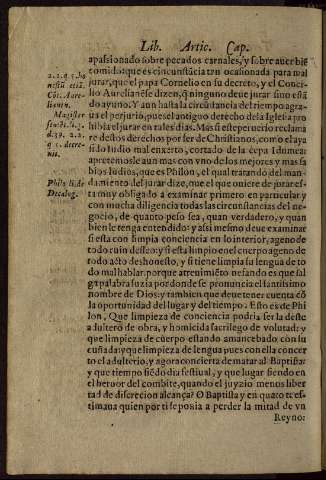 Lib. Artic. Cap.
apassionado sobre pecados carnales, y sobre auer biẽ
comido: que es circunstãcia tan ocasionada para mal
jurar, que el papa Cornelio en su decreto, y el Conci-
lio Aurelianẽse dizen, q̃ ninguno deue jurar sino està
do ayuno. Y aun hasta la circũstancia del tiempo agra-
ua el perjurio, pues el antiguo derecho de la Iglesia pro
hibia el jurar en tales dias. Mas si este perjuerio reclama
re destos derechos por ser de Christianos, como el aya
sido Iudio mal enxerto, cortado de la cepa Idumea:
apretemosle aun mas con vno de los mejores y mas sa
bios Iudios, que es Philon, el qual tratando del man-
damiento del jurar dize, que el que quiere de jurar es-
ta muy obligado a examinar primero en particular y
con mucha diligencia todas las circunstancias del ne-
gocio, de quanto peso sea, quan verdadero, y quan
bien le tenga entendido: y assi mesmo deue examinar
si esta con limpia conciencia en lo interior, ageno de
todo ruin desseo: y si esta limpio en el cuerpo ageno de
todo acto deshonesto, y si tiene limpia su lengua de to
do mal hablar. porque atreuimiẽto nefando es que sal
ga palabra suzia por donde se pronuncia el santissimo
nombre de Dios: y tambien que deue tener cuenta cõ
la oportunidad del lugar y del tiempo. Esto es de Phi
lon, Que limpieza de conciencia podria ser la deste
adultero de obra, y homicida sacrilego de voluntad: y
que limpieza de cuerpo estando amancebado con su
cuñada: y que limpieza de lengua pues con ella concer
to el adulterio, y agora concierta de matar al Baptista:
y que tiempo siẽdo dia festiual, y que lugar siendo en
el heruor del combite, quando el juyzio menos liber
tad de discrecion alcança? O Baptista y en quãto te es-
timaua quien por ti se ponia a perder la mitad de vn
Reyno:
2. 2. q. 5. ho
nestũ etiã.
Cõc. Aure-
lianẽn.
Magister
sen. 3. li. 3.
d. 39. 2. 2.
q. 5. decre-
uit.
Philo li. de
Decalog.